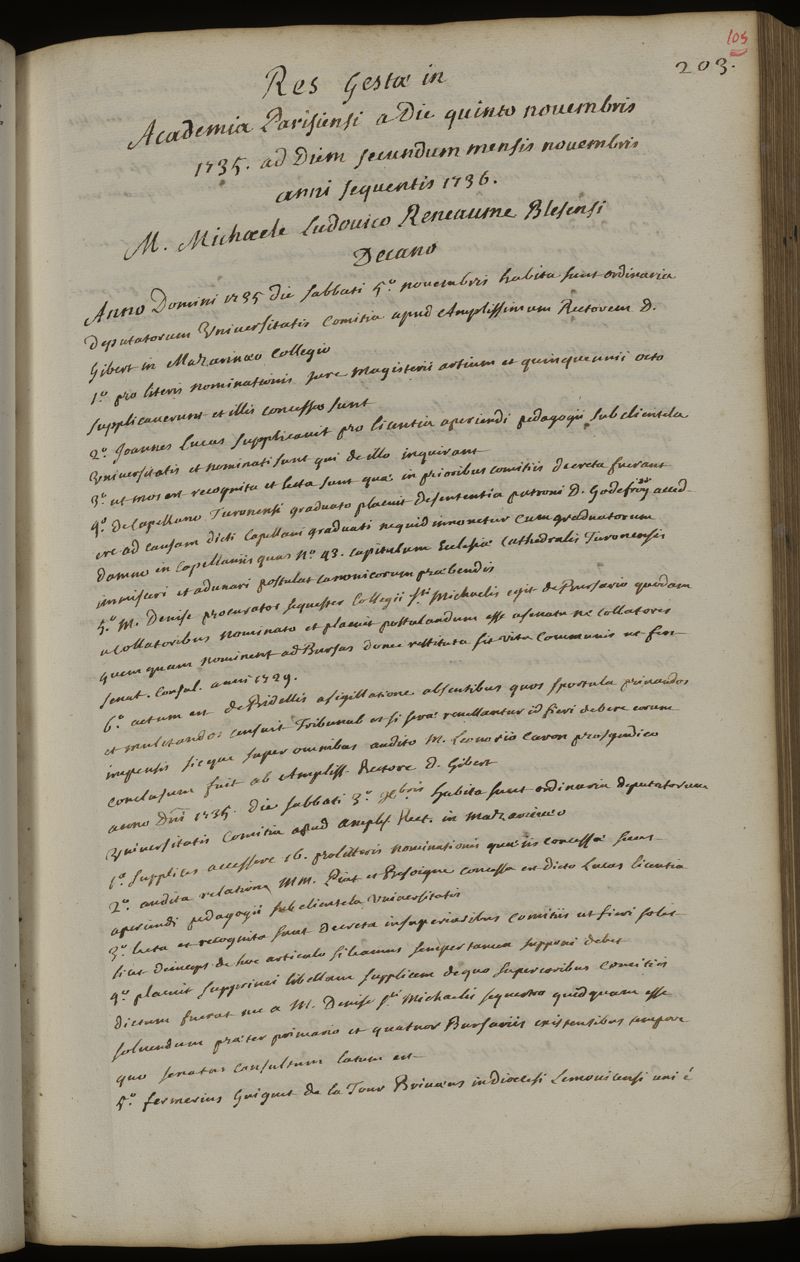 105
203.
Res Gestæ in
Academia Parisiensi a Die quinto novembris
1735. ad Diem secundum mensis novembris
anni sequentis 1736.
M. Michaele Ludovico Reneaume Blesensi
Decano
Anno Domini 1735 die sabbati 5.º novembris habita sunt ordinaria
deputatorum Universitatis Comitia apud Amplissimum Rectorem D.
Gibert in Mazarinæo Collegio
1.º pro literis nominationis jure magisterii artium et quinquennii octo
supplicaverunt et illis concessæ sunt
2.º Joannes Lucas supplicavit pro licentia aperiendi pedagogii sub clientela
Universitatis et nominati sunt qui de illo inquirant
3.º ut mos est recognita et lecta sunt quæ in prioribus comitiis decreta fuerant
4.º de Capellano Turonensi graduato placuit de sententia patroni D. Godefroy acced-
ere ad causam dicti Capellani graduati nequid innovetur cum graduatorum
damno in Capellaniis quas Nº 43. capitulum Ecclesiæ Cathedralis Turonensis
immisceri et adunari postulat canonicorum præbendis
5.º M. Denise procurator sequester Collegii Sti Michaelis egit de Bursario quodam
a collatoribus nominato et placuit postulandum esse a senatu ne collatores
quemquam nominent ad Bursas donec restituta sit vita communis ut fert
senat. Consul. anni 1729.
6.º actum est de Bidellis a sigillatione absentibus quos sportula privandos
et mulctandos censuit Tribunal et si sera revellantur id fieri debere eorum
impensis sicque super omnibus audito M. Leonorio Caron pro syndico
conclusum fuit ab Ampliss. Rectore D. Gibert
anno Dni 1735. die sabbati 3.º Xbris habita sunt ordinaria deputatorum
Universitatis Comitia apud Ampliss. Rect. in Mazarinæo
1.º supplices accessere 16. pro litteris nominationis quæ iis concessæ sunt
2.º audita relatione MM. Piat et concessa est dicto Lucas licentia
aperiendi pedagogii sub clientela Universitatis
3.º lecta et recognita sunt decreta in superioribus Comitiis ut fieri solet
licet deinceps de hoc articulo sileamus semper tamen supponi debet
4.º placuit supprimi libellum supplicem de quo superioribus Comitiis
dictum fuerat ne a M. Denise Sti Michaelis sequestro quidquam esse
solvendum præter primario et quatuor Bursariis existensibus tempore
quo senatus consultum latum est
5.º fermerius Guiguet de la Tour Brivæus in diœcesi Lemovicensi uni é